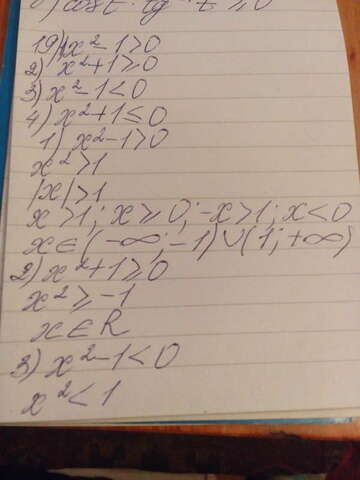 6) cost · tg t ≥ 0
19) x² - 1 > 0
2) x² + 1 ≥ 0
3) x² - 1 < 0
4) x² + 1 ≤ 0
1) x² - 1 > 0
x² > 1
|x| > 1
x > 1; x ≥ 0; -x > 1; x < 0
x ∈ (-∞; -1) ∪ (1; +∞)
2) x² + 1 ≥ 0
x² ≥ -1
x ∈ R
3) x² - 1 < 0
x² < 1